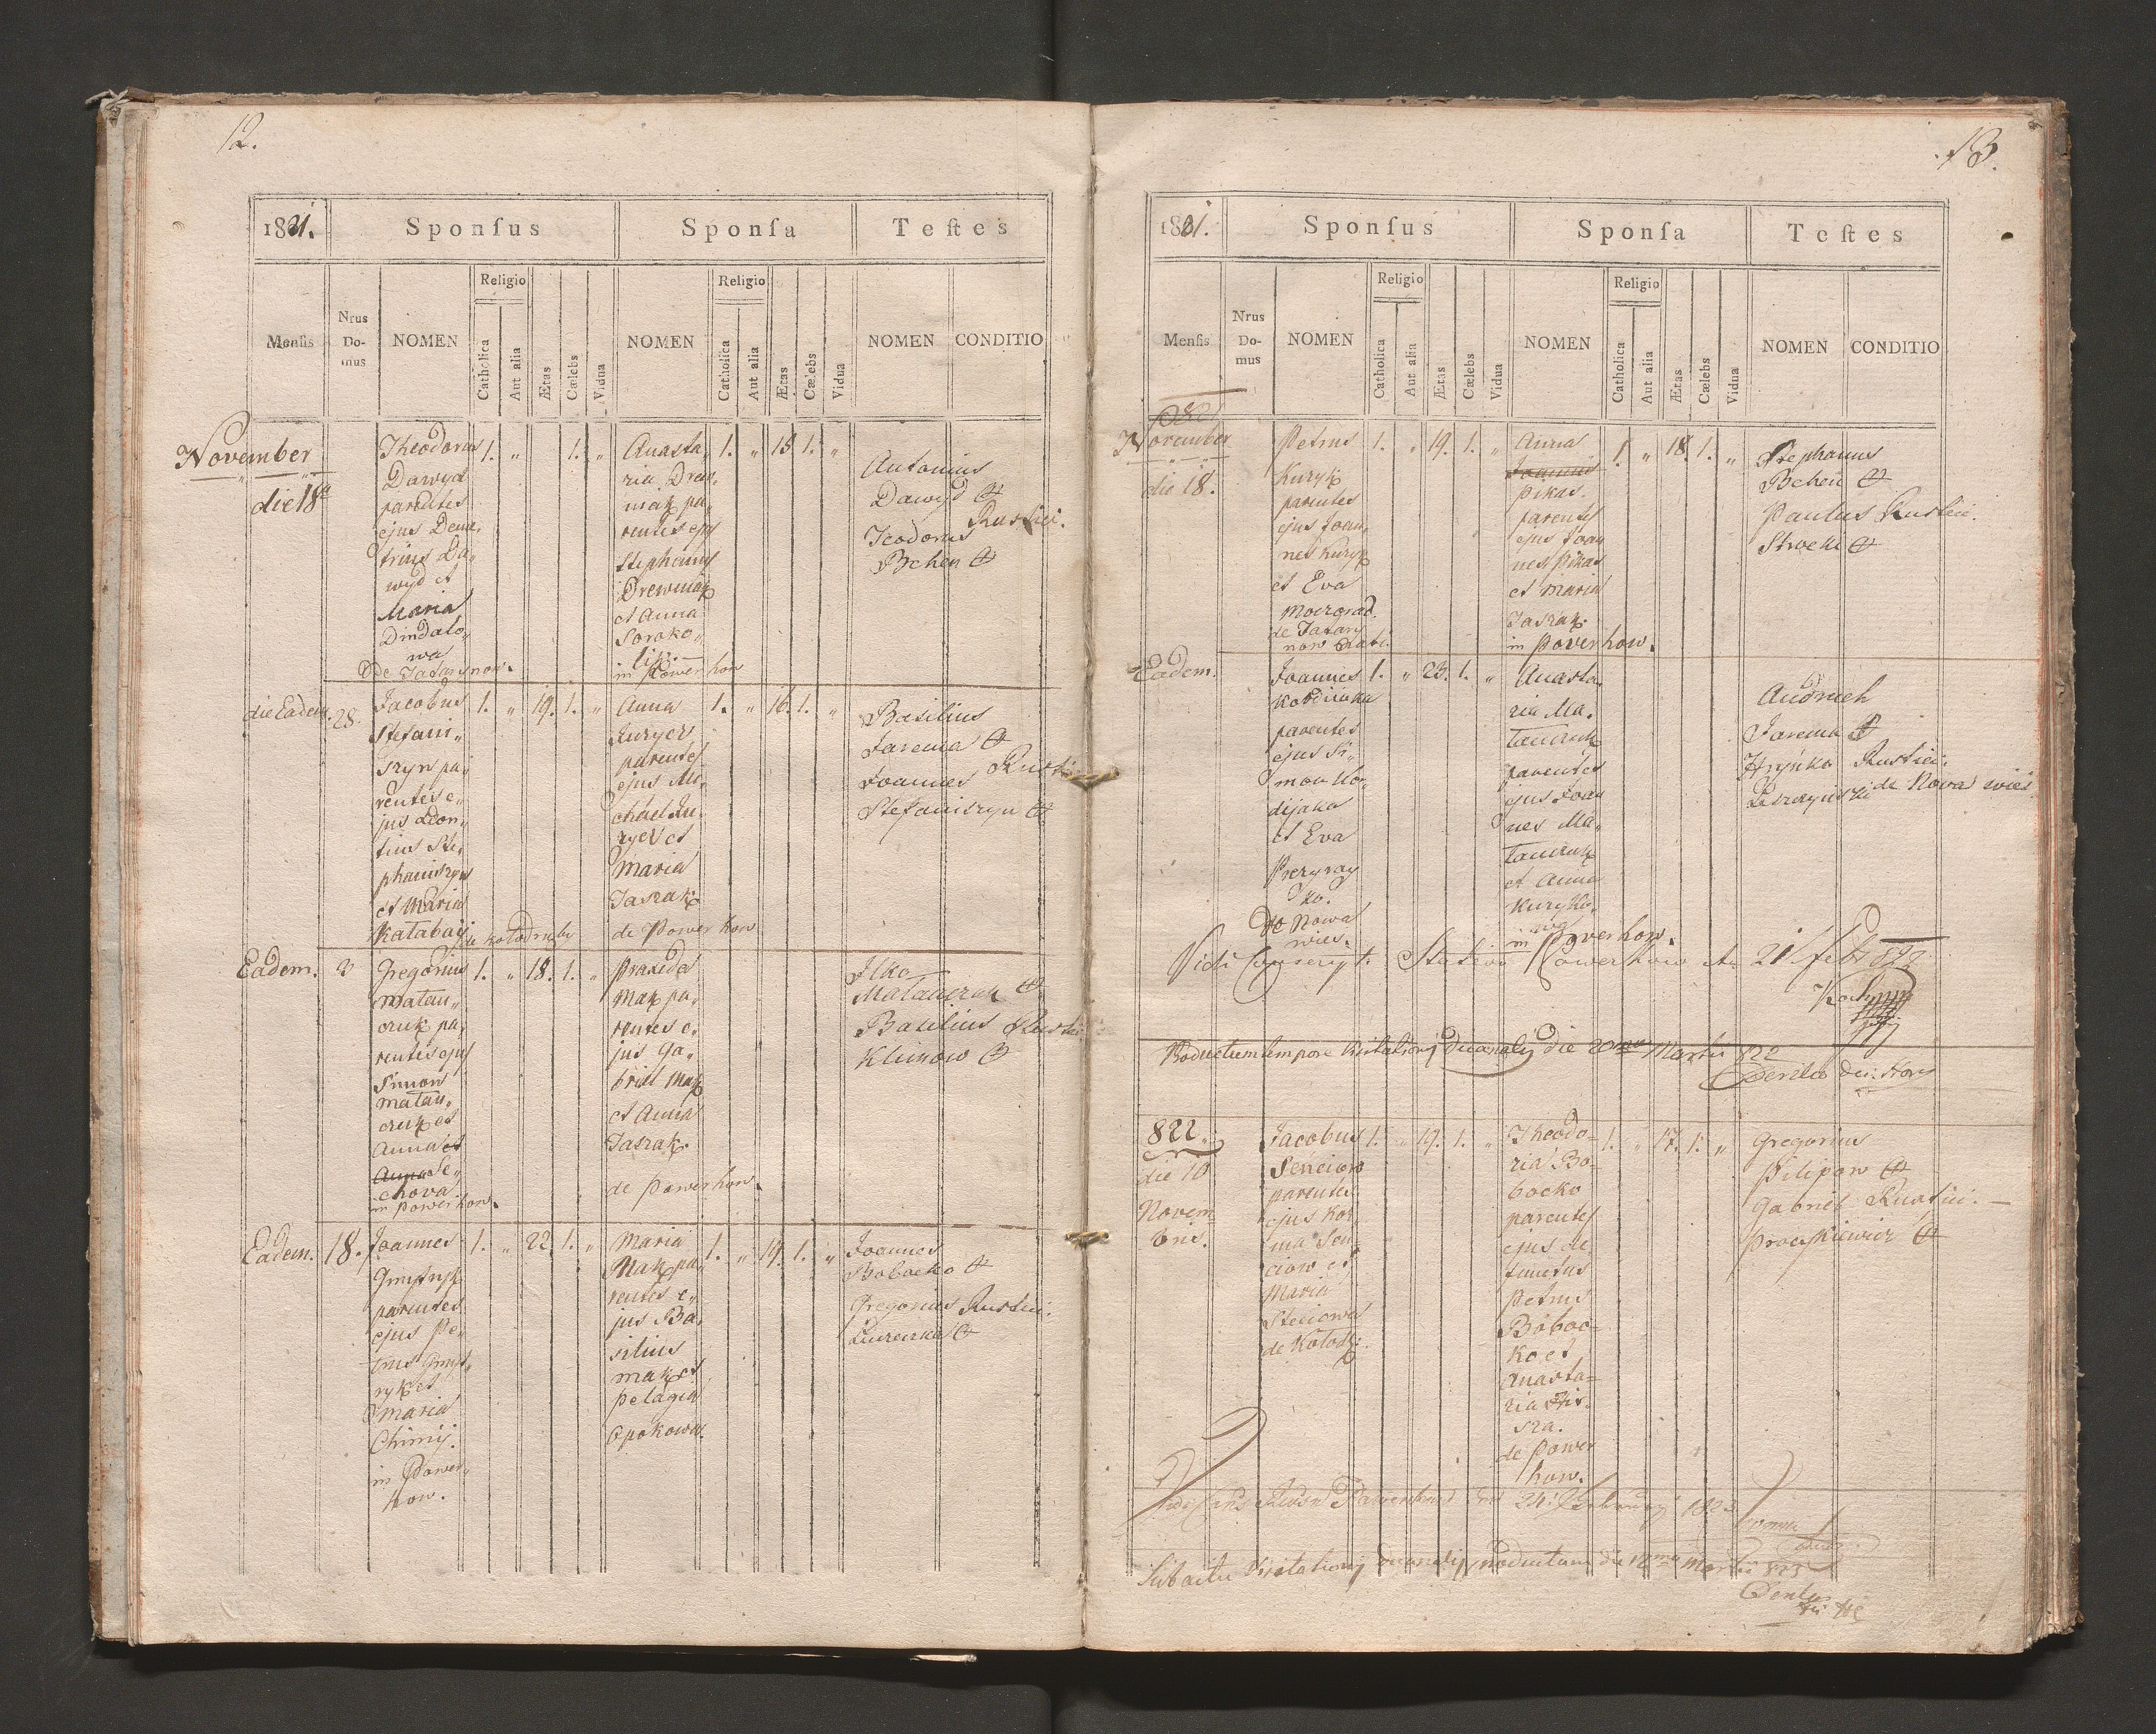 12.
1821.
Sponsus
Sponsa
Testes
Mensis
Nrus Domus
NOMEN
Religio
Catholica
Aut alia
Ætas
Cælebs
Vidua
NOMEN
Religio
Catholica
Aut alia
Ætas
Cælebs
Vidua
NOMEN
CONDITIO
November
die 18a
Theodorus
Dawyd
parentes
ejus Deme„
trius Da„
wyd et
Maria
Dindalo„
wa
de Tatarynow.
1. „ 1. „
Anasta„
zia Drew„
niak pa„
rentes ejus
Stephanus
Drewniak
et Anna
Soroko„
lik.
in Powerhow
1. „ 15 1. „
Antonius
Dawyd +
Rustici.
Teodorus
Behen +
die Eadem.
28.
Jacobus
Stefani„
szyn pa„
rentes e„
jus Leon„
tius Ste„
phaniszyn
et Maria
Katabaij
de Kołodruby
1. „ 19. 1. „
Anna
Kuryer
parentes
ejus Mi„
chael Ku„
ryer et
Maria
Jaszak
de Powerhow
1. „ 16. 1. „
Basilius
Jarema +
Rustici
Joannes
Stefaniszyn +
Eadem.
3
Gregorius
Matau„
czuk pa„
rentes ejus
Simon
Matau„
czuk et
Anna et
Anna Se„
chova
in Powerhow.
1. „ 18. 1. „
Praxeda
Mak pa„
rentes e„
jus Ga„
briel Mak
et Anna
Jaszak
de Powerhow.
Ilko
Matauczuk +
Basilius Rustici
Klimow +
Eadem.
18.
Joannes
Gmytryk
parentes
ejus Pe„
trus Gmyt„
ryk et
Maria
Chimij.
in Power„
how.
1. „ 22. 1. „
Maria
Mak pa„
rentes e„
jus Ba„
silius
Mak et
Pelagia
Opokowa.
1. „ 19. 1. „
Joannes
Bobocko +
Gregorius Rustici.
+
13.
1821.
Sponsus
Sponsa
Testes
Mensis
Nrus Domus
NOMEN
Religio
Catholica
Aut alia
Ætas
Cælebs
Vidua
NOMEN
Religio
Catholica
Aut alia
Ætas
Cælebs
Vidua
NOMEN
CONDITIO
November
die 18.
Petrus
Kuryk
parentes
ejus Joan„
nes Kuryk
et Eva
de Tatary
now
1. „ 19. 1. „
Anna
Joannis
Pikas.
parentes
ejus Joan
nes Pikas
et Maria
Jaszak
in Powerhow.
1. „ 18. 1. „
Stephanus
Behen +
Paulus Rustici.
Strocki +
Eadem.
Joannes
Kodiiaka
parentes
ejus Si„
mon Ko„
dijaka
et Eva
de Nowa
wies.
1. „ 23. 1. „
Anasta„
zia Ma„
tauczuk
parentes
ejus Joan
nes Ma„
tauczuk
et Anna
Kuryko„
wa
in Powerhow.
Andruch
Jarema +
Hryńko Rustici.
de Nowa wieś
Vidi Conscript. Powerhow 21 Febr 822
Productum tempore Visitationis Decanalis die 20ma Martii 822
822.
die 10
Novem
bris.
Jacobus
Senciow
parentes
ejus Koz
ma Sen
ciow et
Maria
Steciowa
de Kołod:
1. „ 19. 1. „
Theodo–
zia Bo–
bocko
parentes
ejus de
functus
Petrus
Boboc–
ko et
Anasta–
zia
de Power
how.
1. „ 17. 1. „
Gregorius
Pilipow +
Gabriel Rustici.
Procykiewicz +
24
Sub actu Visitationis Decanalis productum die Martii 823